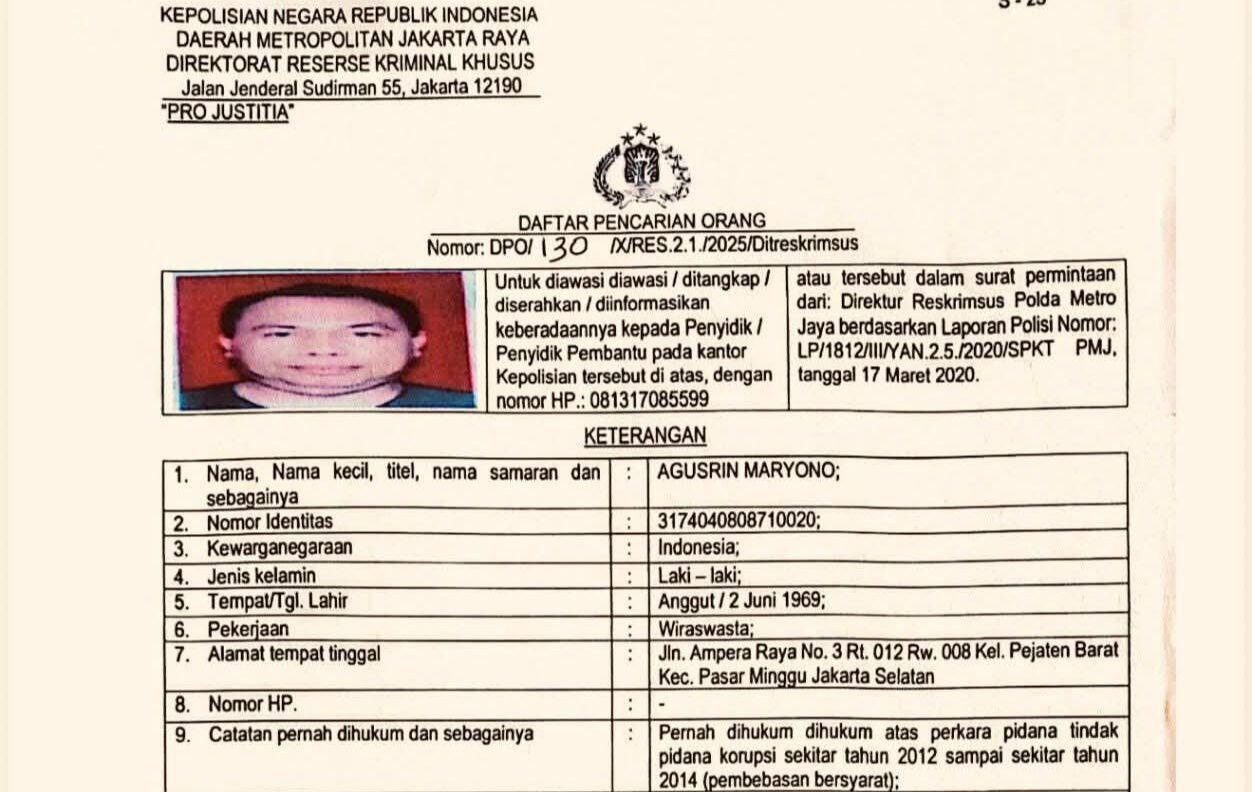 S - 23
KEPOLISIAN NEGARA REPUBLIK INDONESIA
DAERAH METROPOLITAN JAKARTA RAYA
DIREKTORAT RESERSE KRIMINAL KHUSUS
Jalan Jenderal Sudirman 55, Jakarta 12190
"PRO JUSTITIA"
DAFTAR PENCARIAN ORANG
Nomor: DPO/ 130 /X/RES.2.1./2025/Ditreskrimsus
Untuk diawasi diawasi / ditangkap /
diserahkan / diinformasikan
keberadaannya kepada Penyidik /
Penyidik Pembantu pada kantor
Kepolisian tersebut di atas, dengan
nomor HP.: 081317085599
atau tersebut dalam surat permintaan
dari: Direktur Reskrimsus Polda Metro
Jaya berdasarkan Laporan Polisi Nomor:
LP/1812/III/YAN.2.5./2020/SPKT PMJ,
tanggal 17 Maret 2020.
KETERANGAN
1. Nama, Nama kecil, titel, nama samaran dan : AGUSRIN MARYONO;
sebagainya
2. Nomor Identitas : 3174040808710020;
3. Kewarganegaraan : Indonesia;
4. Jenis kelamin : Laki – laki;
5. Tempat/Tgl. Lahir : Anggut / 2 Juni 1969;
6. Pekerjaan : Wiraswasta;
7. Alamat tempat tinggal : Jln. Ampera Raya No. 3 Rt. 012 Rw. 008 Kel. Pejaten Barat
Kec. Pasar Minggu Jakarta Selatan
8. Nomor HP. : -
9. Catatan pernah dihukum dan sebagainya : Pernah dihukum dihukum atas perkara pidana tindak
pidana korupsi sekitar tahun 2012 sampai sekitar tahun
2014 (pembebasan bersyarat);